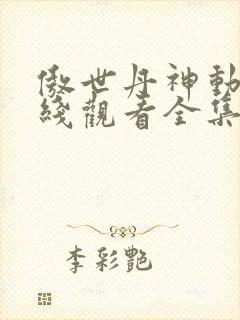 傲世丹神動
綫觀看全集
李彩艷